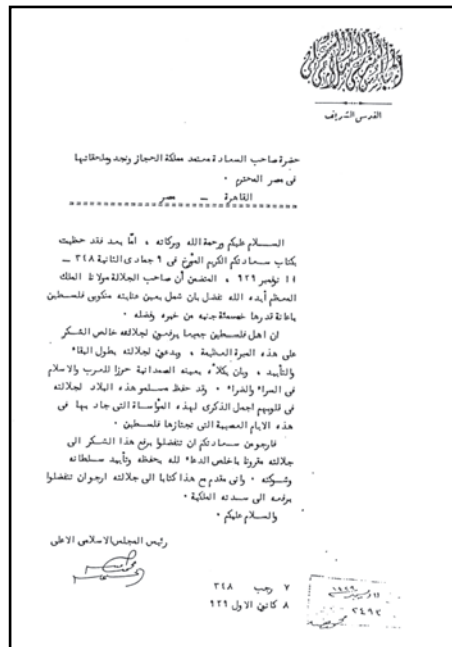 المجلس الشرعي الاسلامي الاعلى
القدس الشريف
حضرة صاحب السعادة معتمد مملكة الحجاز ونجد وملحقاتها
في مصر المحترم ·
القاهرة — مصر
السلام عليكم ورحمة الله وبركاته ، امّا بعد فقد حظيت
بكتاب سعادتكم الكريم المؤرخ في ٩ جمادى الثانية ٣٤٨ —
١١ نوفمبر ٩٢٩ ، المتضمن أن صاحب الجلالة مولانا الملك
المعظم أيده الله تفضل بان شمل بعين عنايته منكوبي فلسطين
باعانة قدرها خمسمئة جنيه من خيره وفضله ·
ان اهل فلسطين جميعا يرفعون لجلالته خالص الشكر
على هذه المبرة العظيمة ، ويدعون لجلالته بطول البقاء
والتأييد ، وبان يكلأه بعينه الصمدانية حرزا للعرب والاسلام
في السراء والضراء · وقد حفظ مسلمو هذه البلاد لجلالته
في قلوبهم اجمل الذكرى لهذه المؤاساة التى جاد بها في
هذه الايام العصيبة التي تجتازها فلسطين ·
فارجو من سعادتكم ان تتفضلوا برفع هذا الشكر الى
جلالته مقرونا باخلص الدعاء لله بحفظه وتأييد سلطانه
وشوكته · وانى مقدم مع هذا كتابا الى جلالته ارجو ان تتفضلوا
برفعه الى سدته الملكية ·
والسلام عليكم ·
رئيس المجلس الاسلامي الاعلى
٧ رجب ٣٤٨
٨ كانون الاول ٩٢٩
٢٤٩٢